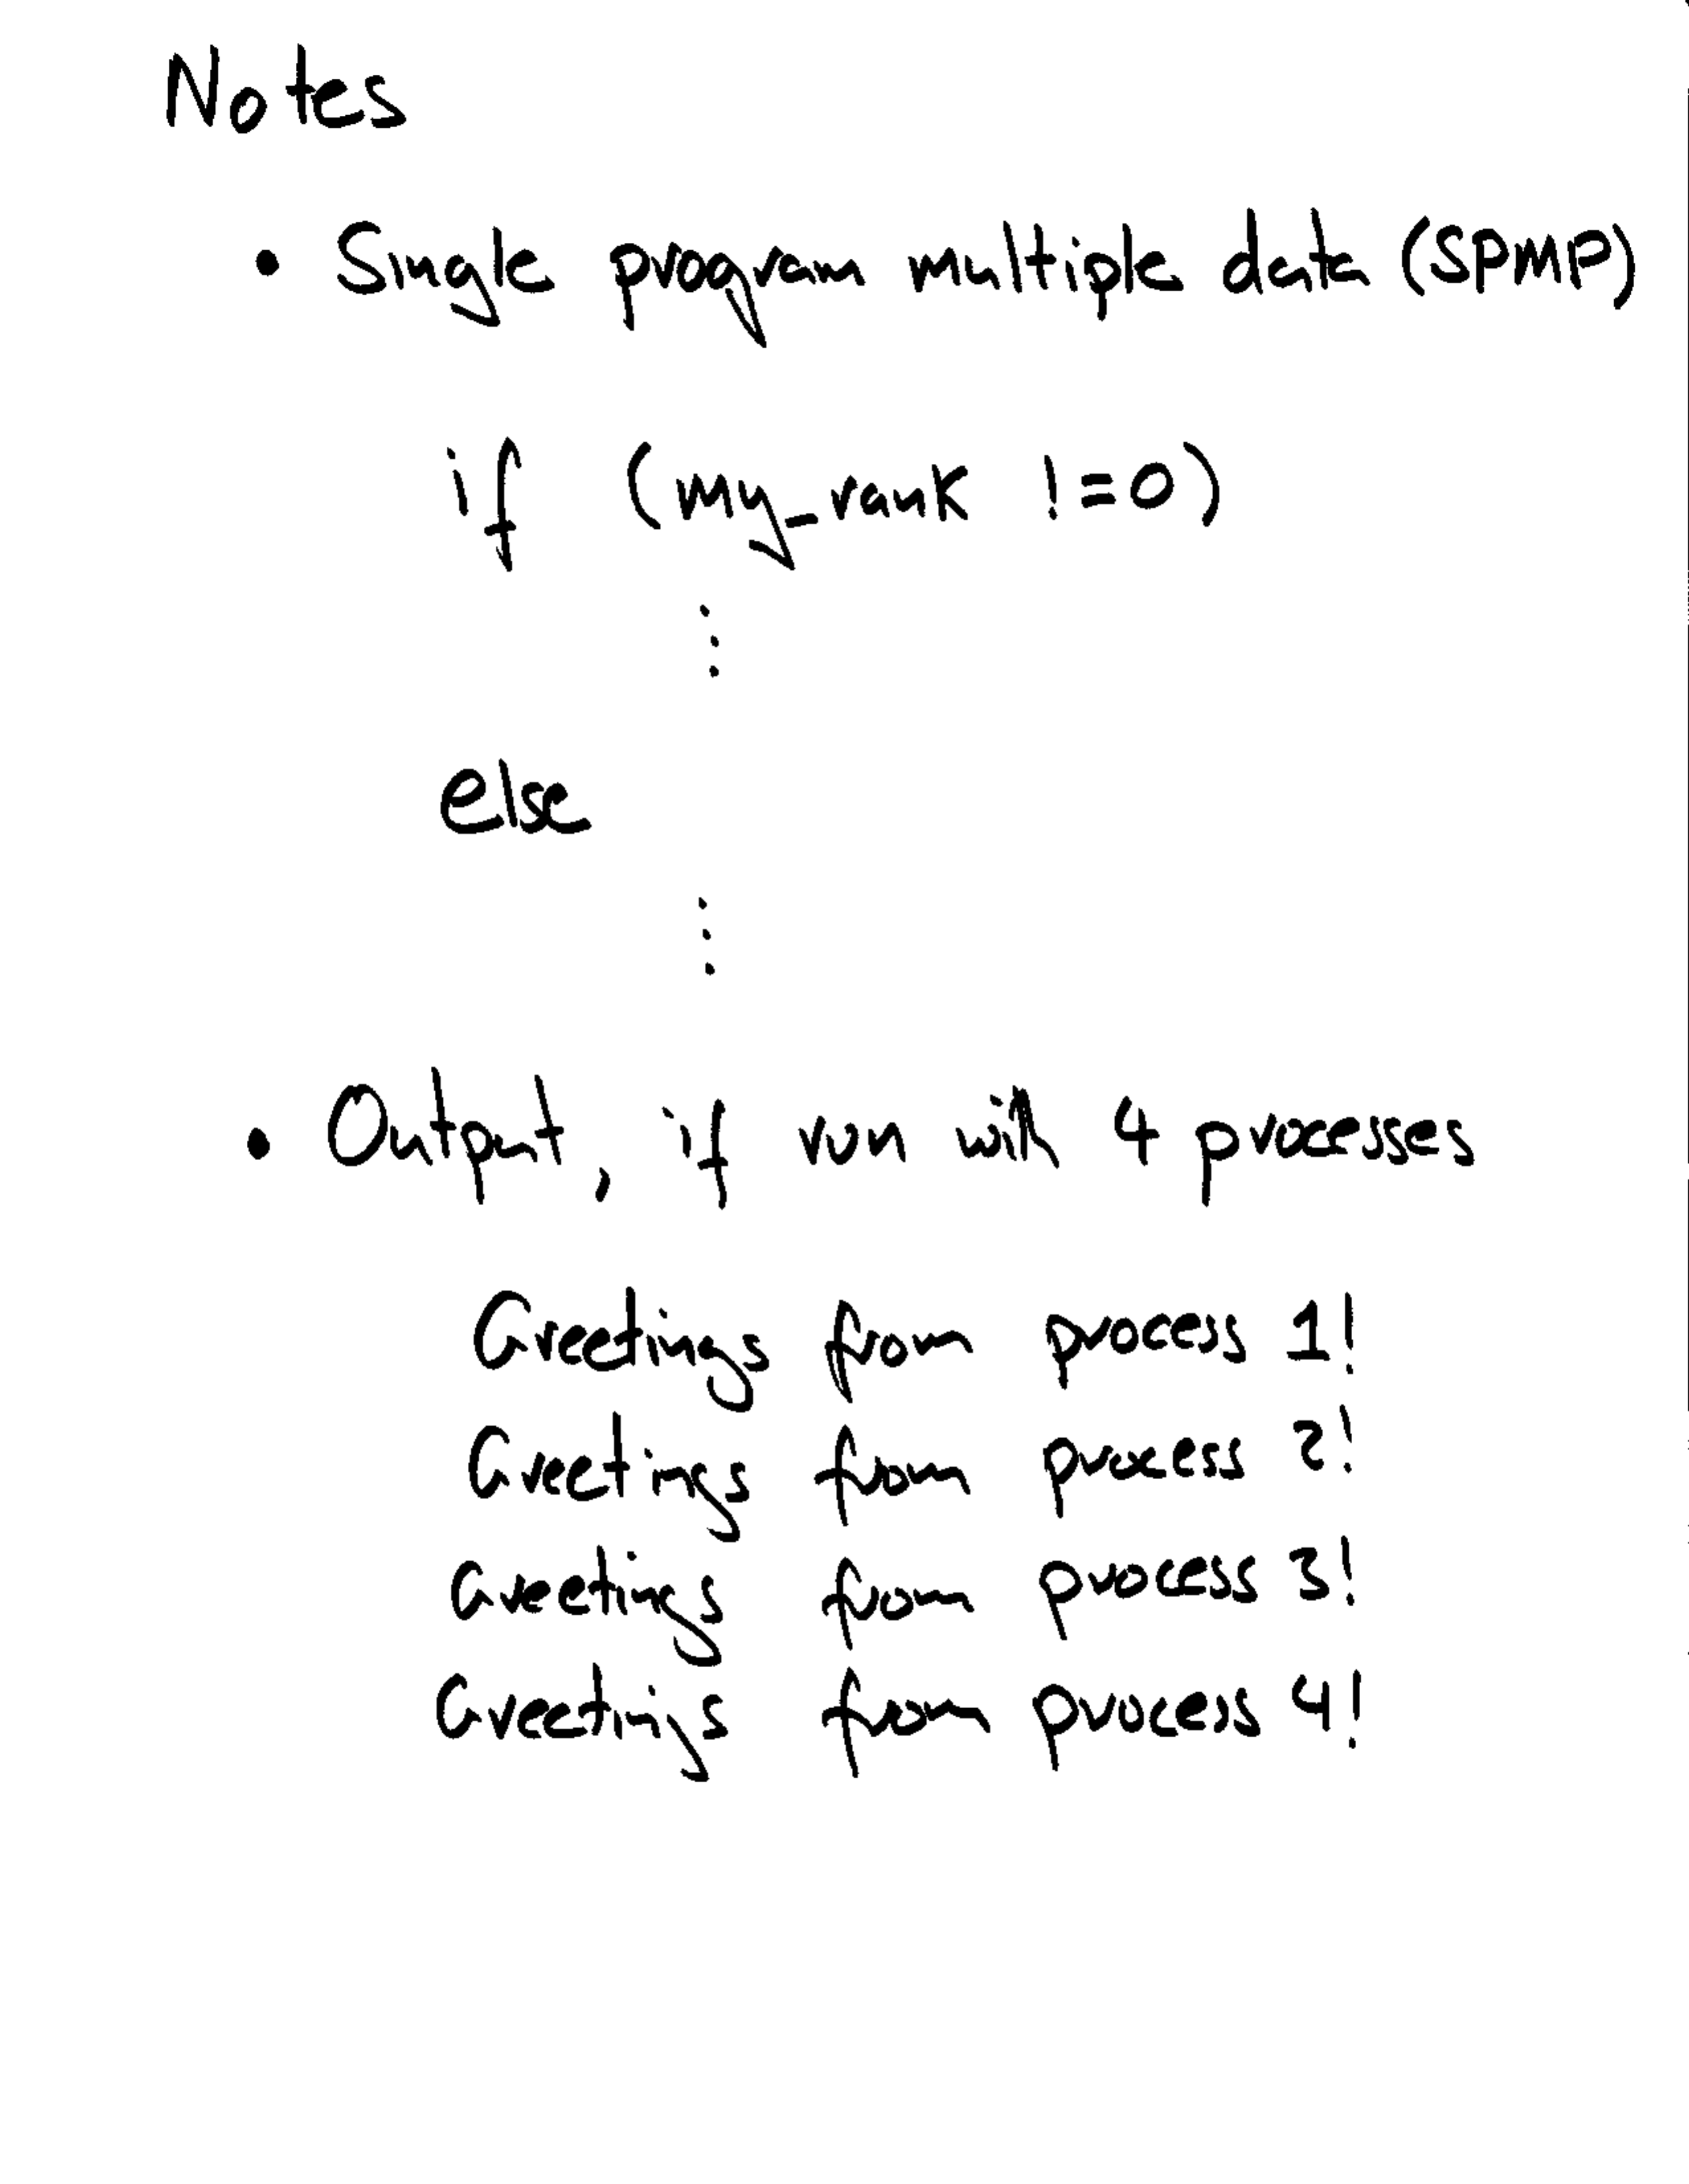 Notes
• Single program multiple data (SPMP)
if (my_rank !=0)
⋮
else
⋮
• Output, if run with 4 processes
Greetings from process 1!
Greetings from process 2!
Greetings from process 3!
Greetings from process 4!